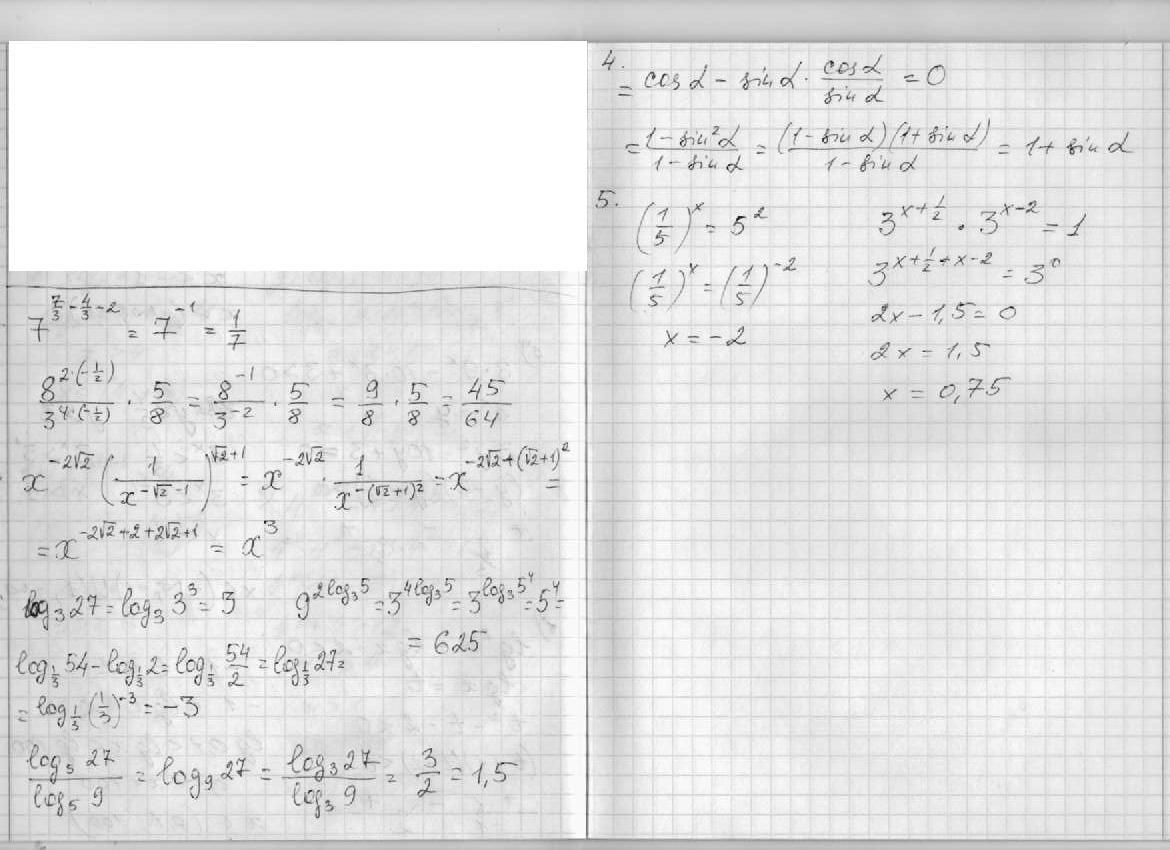 7^{7/3 - 4/3 - 2} = 7^{-1} = 1/7
8^{2·(-1/2)} / 3^{4·(-1/2)} · 5/8 = 8^{-1} / 3^{-2} · 5/8 = 9/8 · 5/8 = 45/64
x^{-2√2} (1 / x^{-√2-1})^{√2+1} = x^{-2√2} · 1 / x^{-(√2+1)^2} = x^{-2√2+(√2+1)^2} =
= x^{-2√2+2+2√2+1} = x^3
log_3 27 = log_3 3^3 = 3
9^{2log_3 5} = 3^{4log_3 5} = 3^{log_3 5^4} = 5^4 =
= 625
log_{1/3} 54 - log_{1/3} 2 = log_{1/3} 54/2 = log_{1/3} 27 =
= log_{1/3} (1/3)^{-3} = -3
log_5 27 / log_5 9 = log_9 27 = log_3 27 / log_3 9 = 3/2 = 1,5
4.
= cos α - sin α · cos α / sin α = 0
= (1 - sin^2 α) / (1 - sin α) = (1 - sin α)(1 + sin α) / (1 - sin α) = 1 + sin α
5.
(1/5)^x = 5^2
(1/5)^x = (1/5)^{-2}
x = -2
3^{x+1/2} · 3^{x-2} = 1
3^{x+1/2+x-2} = 3^0
2x - 1,5 = 0
2x = 1,5
x = 0,75